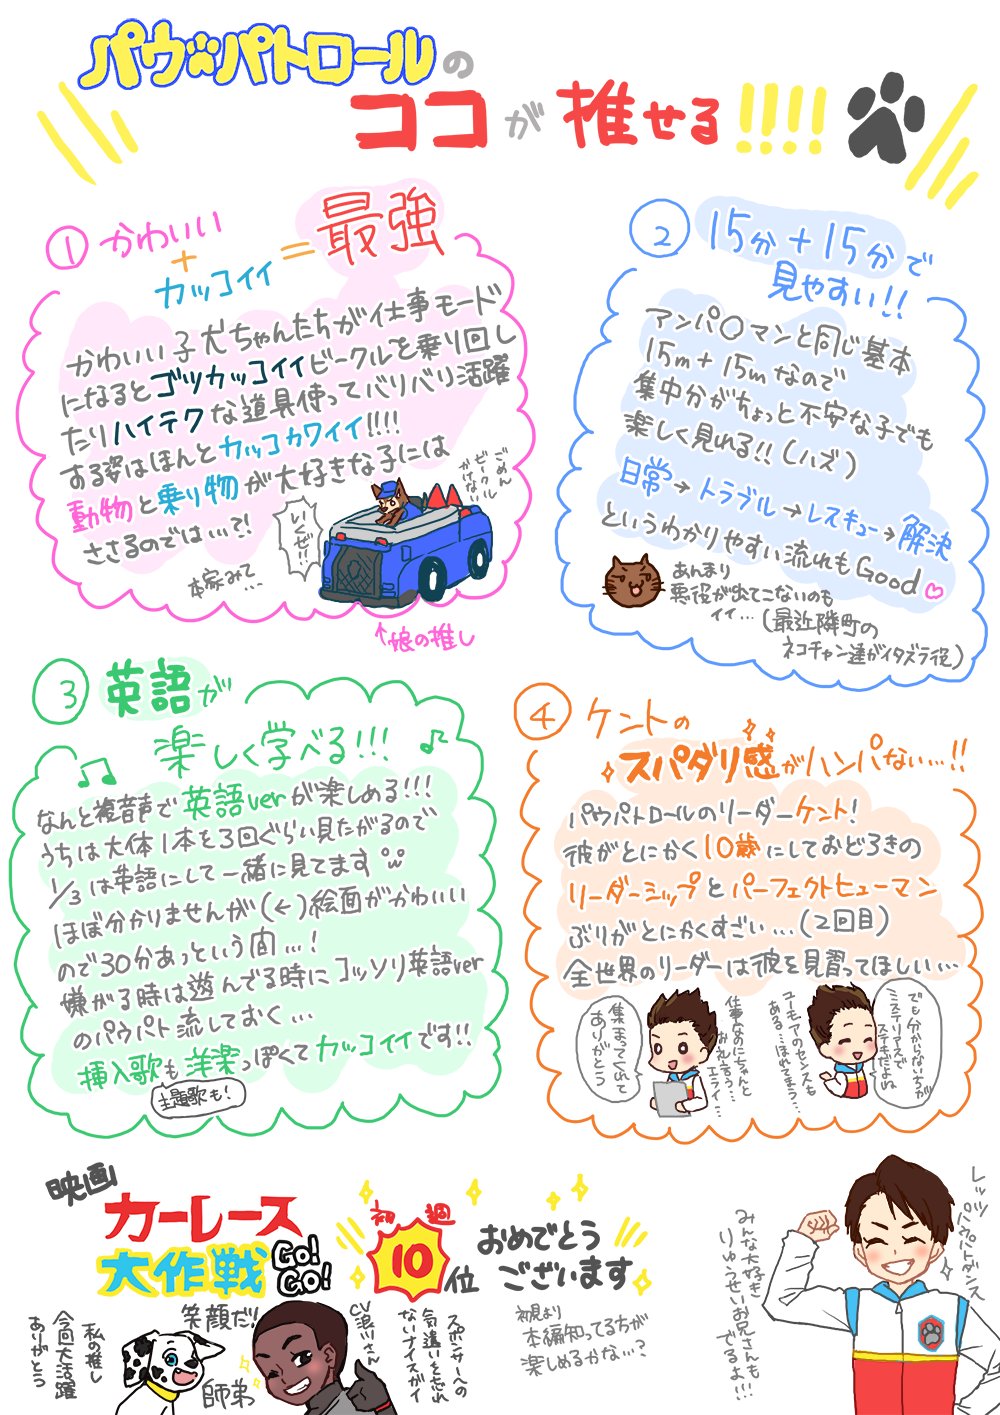 パウパトロールの
ココが推せる!!!!
① かわいい
+
カッコイイ
=最強
かわいい子犬ちゃんたちが仕事モード
になるとゴツカッコイイビークルを乗り回し
たりハイテクな道具使ってバリバリ活躍
する姿はほんとカッコカワイイ!!!!
動物と乗り物が大好きな子には
ささるのでは…て!
本家みて…
いくぜ!!
ごめん
ビークル
かけない
↑娘の推し
② 15分+15分で
見やすい!!
アンパ〇マンと同じ基本
15m+15mなので
集中分がちょっと不安な子でも
楽しく見れる!!(ハズ)
日常→トラブル→レスキュー→解決
というわかりやすい流れもGood♡
あんまり
悪役が出てこないのも
イイ…(最近隣町の
ネコチャン達がイタズラ役)
③ 英語が
楽しく学べる!!!
なんと複音声で英語verが楽しめる!!!
うちは大体1本を3回ぐらい見たがるので
1/3は英語にして一緒に見てます
ほぼ分かりませんが(←)絵面がかわいい
ので30分あっという間…!
嫌がる時は遊んでる時にコッソリ英語ver
のパウパト流しておく…
挿入歌も洋楽っぽくてカッコイイです!!
主題歌も!
④ ケントの
スパダリ感がハンパない…!!
パウパトロールのリーダーケント!
彼がとにかく10歳にしておどろきの
リーダーシップとパーフェクトヒューマン
ぶりがとにかくすごい…(2回目)
全世界のリーダーは彼を見習ってほしい…
集まってくれて
ありがとう
仕事なのにちゃんと
お礼言う…
エライ…
でも分からないちが
ミステリアスで
ステキだよね
ユーモアのセンスも
ある…ほれてまう…
映画
カーレース
大作戦
GO!
GO!
初週
10位
おめでとう
ございます
私の推し
今回大活躍
ありがとう
笑顔だ!
師弟
CV
浪川さん
スポンサーへの
気遣いを忘れ
ないナイスガイ
初見より
本編知ってる方が
楽しめるかな…?
レッツ
パウパトダンス
みんな大好き
りゅうせいお兄さんも
でるよ!!!